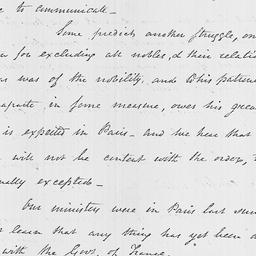 to communicate –
Some predicts another struggle, on
for excluding all nobles, & their relati
was of the nobility, and this
in some measure, owes his grea
is expected in Paris – and we hear that
will not be content with the order,
excepted –
Our ministers were in Paris last
learn that any thing has yet been d
with the Govt. of France.